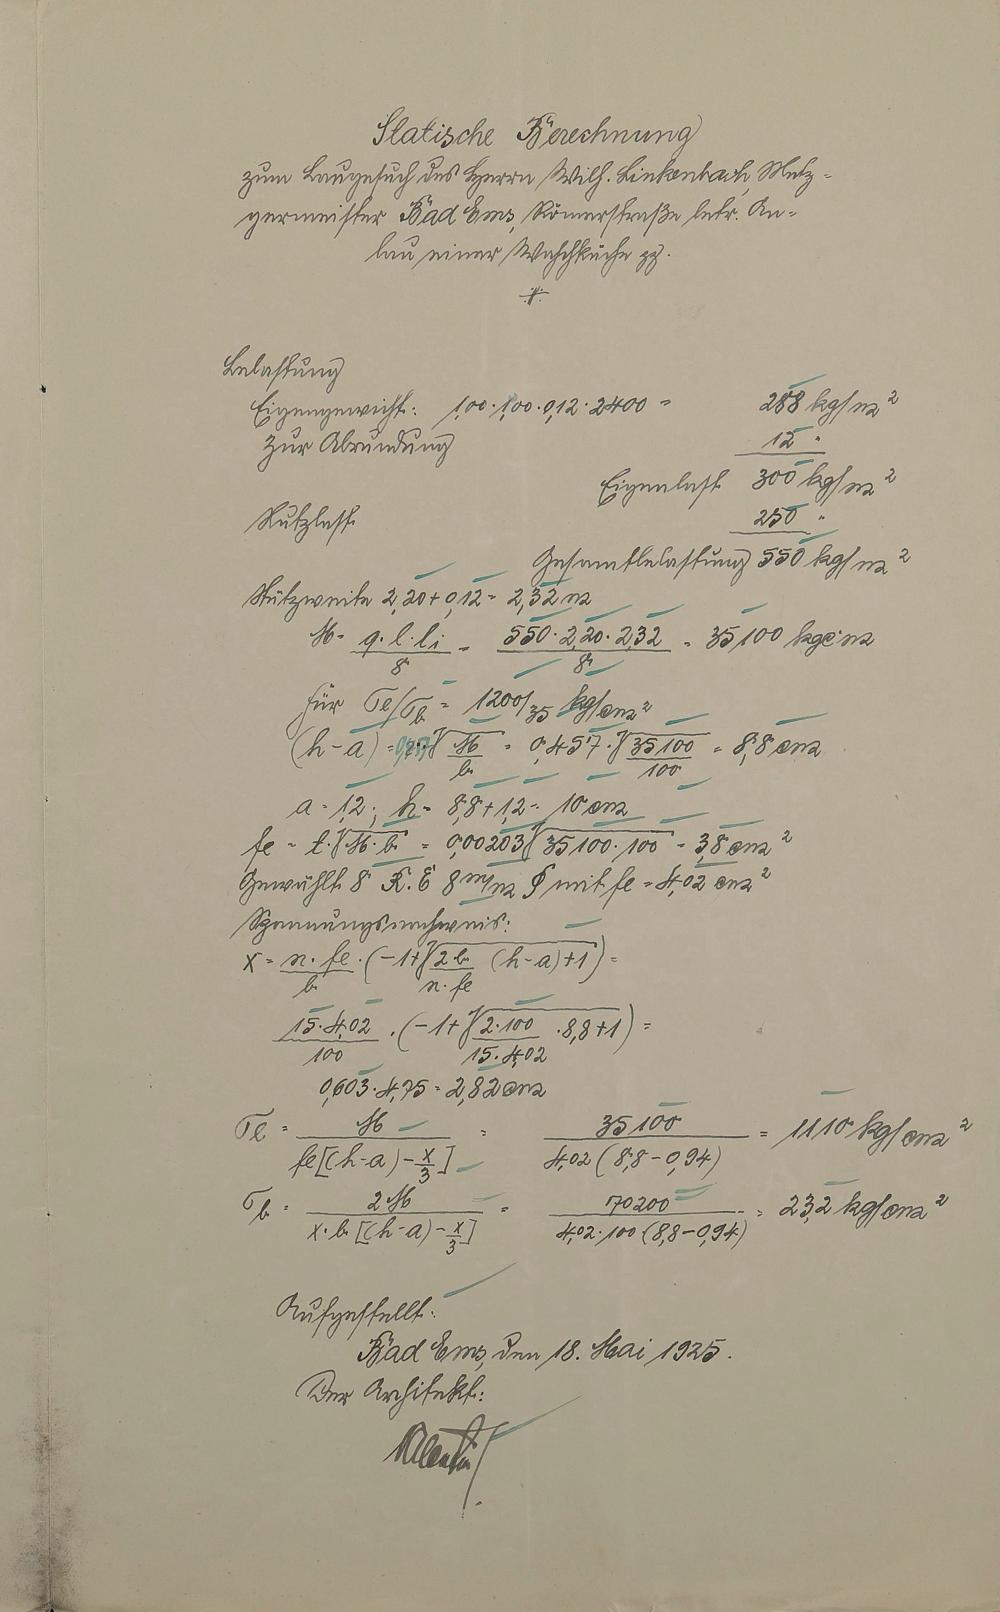 Statische Berechnung
zum Baugesuch des Herrn Wilh. Linkenbach, Metz-
germeister Bad Ems, Römerstraße betr. An-
bau einer Waschküche pp.
Belastung
Eigengewicht: 1,00·1,00·0,12·2400 = 288 kg/m²
Zur Abrundung 12 "
Eigenlast 300 kg/m²
Nutzlast 250 "
Gesamtbelastung 550 kg/m²
Stützweite 2,20+0,12 = 2,32 m
M = q·l·li / 8 = 550·2,20·2,32 / 8 = 35100 kgcm
für σe/σb = 1200/35 kg/cm²
(h-a) = √M/b = 0,457·√35100/100 = 8,8 cm
a = 1,2; h = 8,8+1,2 = 10 cm
fe = t·√M·b = 0,00203√35100·100 = 3,8 cm²
Gewählt 8 R.E 8 m/m ∮ mit fe = 4,02 cm²
Spannungsnachweis:
x = n·fe / b ·(-1+√2b / n·fe (h-a)+1) =
15·4,02 / 100 ·(-1+√2·100 / 15·4,02 ·8,8+1) =
0,603·4,75 = 2,82 cm
σe = M / fe[(h-a)-x/3] = 35100 / 4,02 (8,8-0,94) = 1110 kg/cm²
σb = 2M / x·b[(h-a)-x/3] = 70200 / 4,02·100 (8,8-0,94) = 23,2 kg/cm²
Aufgestellt:
Bad Ems, den 18. Mai 1925.
Der Architekt: